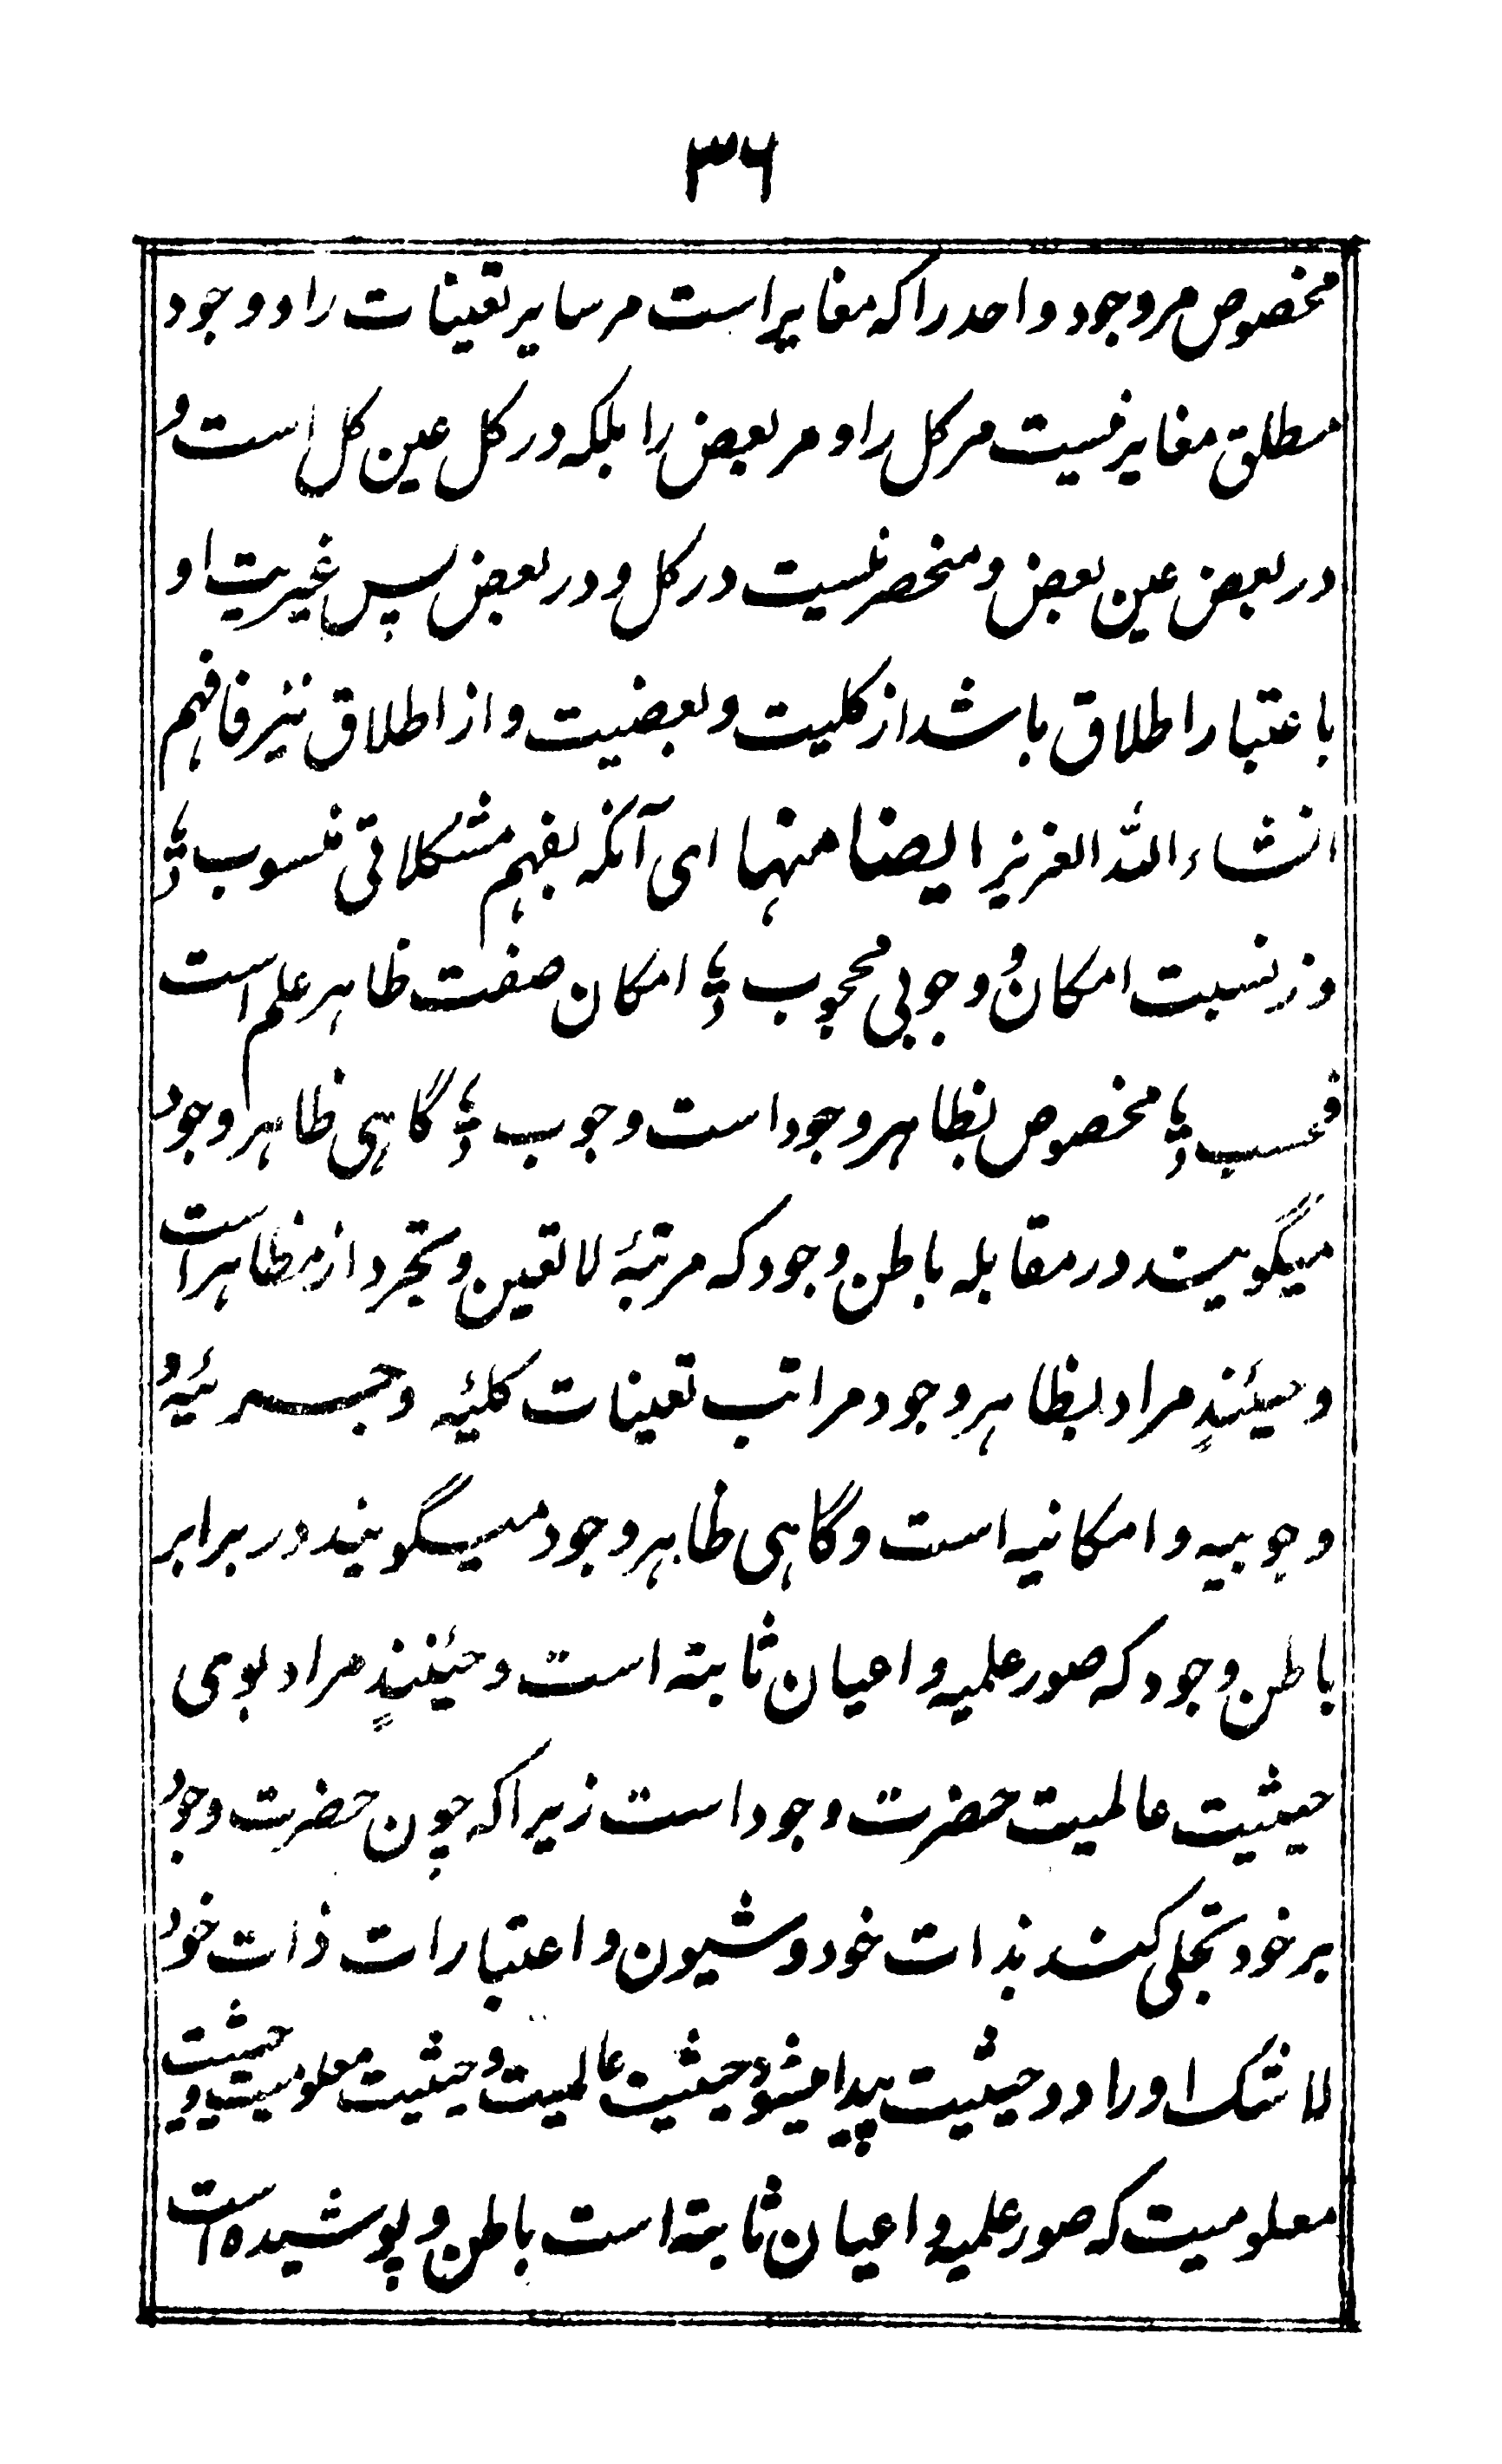 ۳۶
مخصوص مر وجود واحد را که مغایر است مر سایر تعینات را و وجود
مطلق مغایر نیست مر کل را و مر بعض را بلکه در کل عین کل است و
در بعض عین بعض و منحصر نیست در کل و در بعض پس غیریت او
باعتبار اطلاق باشد از کلیت و بعضیت و از اطلاق نیز فافهم
انشاء الله العزیز ایضا منها ای آنکه بفهم مشکلاتی منسوب ؛
وز نسبت امکان و وجوبی محجوب ؛ امکان صفت ظاهر علم است
فحسب ؛ مخصوص بظاهر وجود است وجوب ؛ گاهی ظاهر وجود
میگویند در مقابله باطن وجود که مرتبۂ لا تعین و تجرد از مظاهر است
و حینئذٍ مراد بظاهر وجود مراتب تعینات کلیّه و جزئیه و
وجوبیه و امکانیه است و گاهی ظاهر وجود میگویند در برابر
باطن وجود که صور علمیه و اعیان ثابته است و حینئذٍ مراد بوی
حیثیت عالمیت حضرت وجود است زیرا که چون حضرت وجود
بر خود تجلی کند بذات خود و شیون و اعتبارات ذات خود
لا شک او را دو حیثیت پیدا میشود حیثیت عالمیت و حیثیت معلومیت و حیثیت
معلومیت که صور علمیه و اعیان ثابته است باطن و پوشیده است